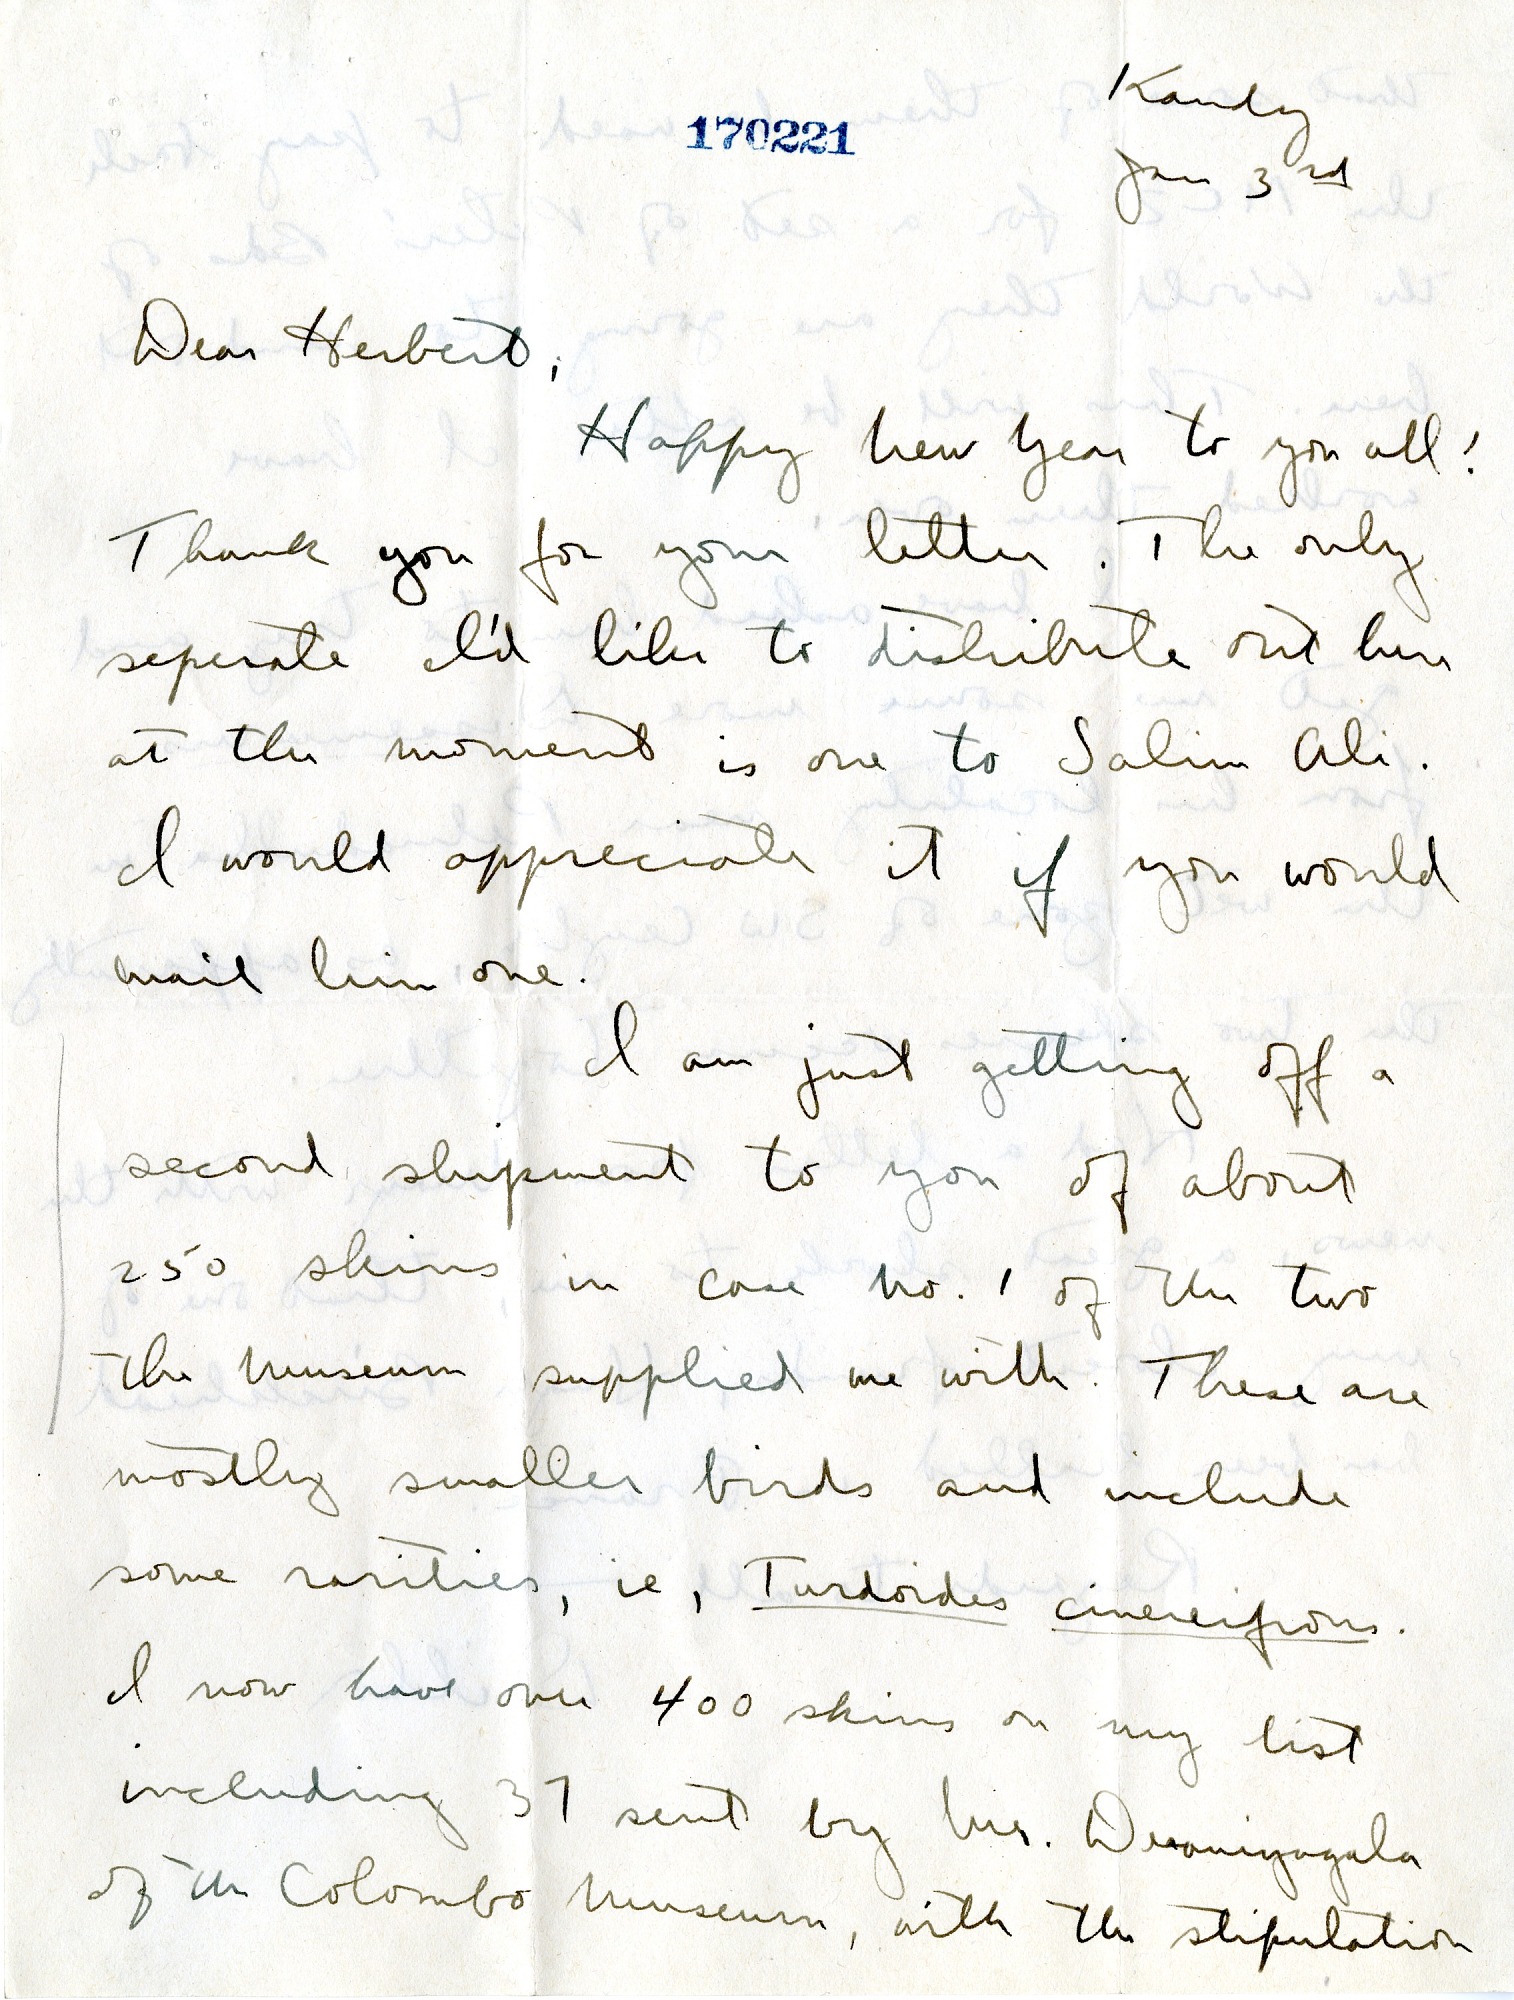 170221
Kandy
Jan 3rd
Dear Herbert,
Happy New Year to you all!
Thank you for your letter. The only
seperate I'd like to distribute out here
at the moment is one to Salim Ali.
I would appreciate it if you would
mail him one.
I am just getting off a
second shipment to you of about
250 skins in case no. 1 of the two
the Museum supplied me with. These are
mostly smaller birds and include
some rarities, ie, Turdoides cinereifrons.
I now have over 400 skins on my list
including 37 sent by Mr. Deraniyagala
of the Colombo Museum, with the stipulation